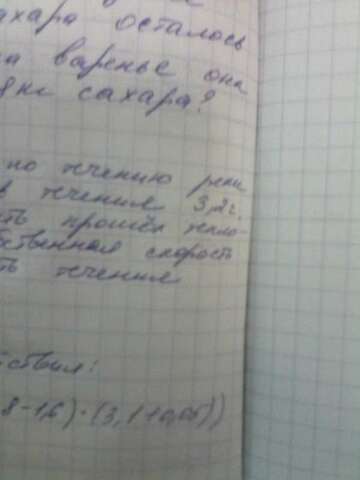 сахара осталось
на варенье она
кг сахара?
по течению реки
в течении 3,2 г.
ть прошёл тепло-
бственная скорость
ть течения
ствия:
8-1,6)·(3,1+0,05))